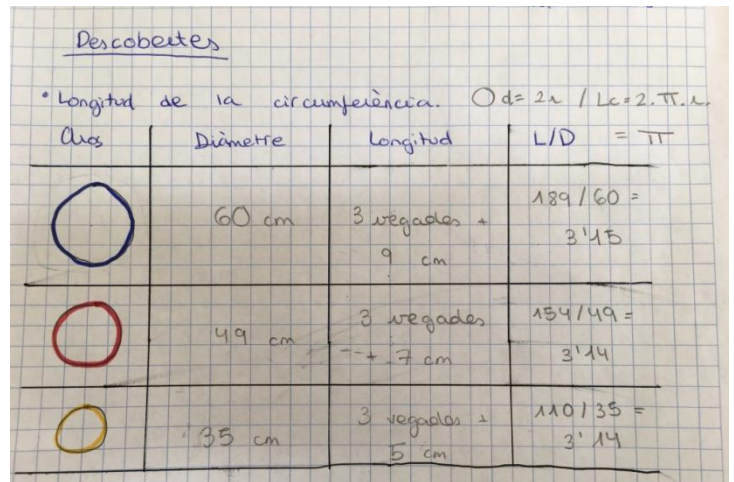 Descobertes
• Longitud de la circumferència. d=2r / Lc=2.π.r.
Aros Diàmetre Longitud L/D = π
60 cm 3 vegades + 189/60 =
9 cm 3'15
49 cm 3 vegades 154/49 =
+ 7 cm 3'14
35 cm 3 vegades + 110/35 =
5 cm 3'14